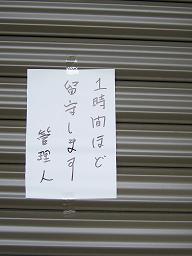 1時間ほど
留守します
管理人